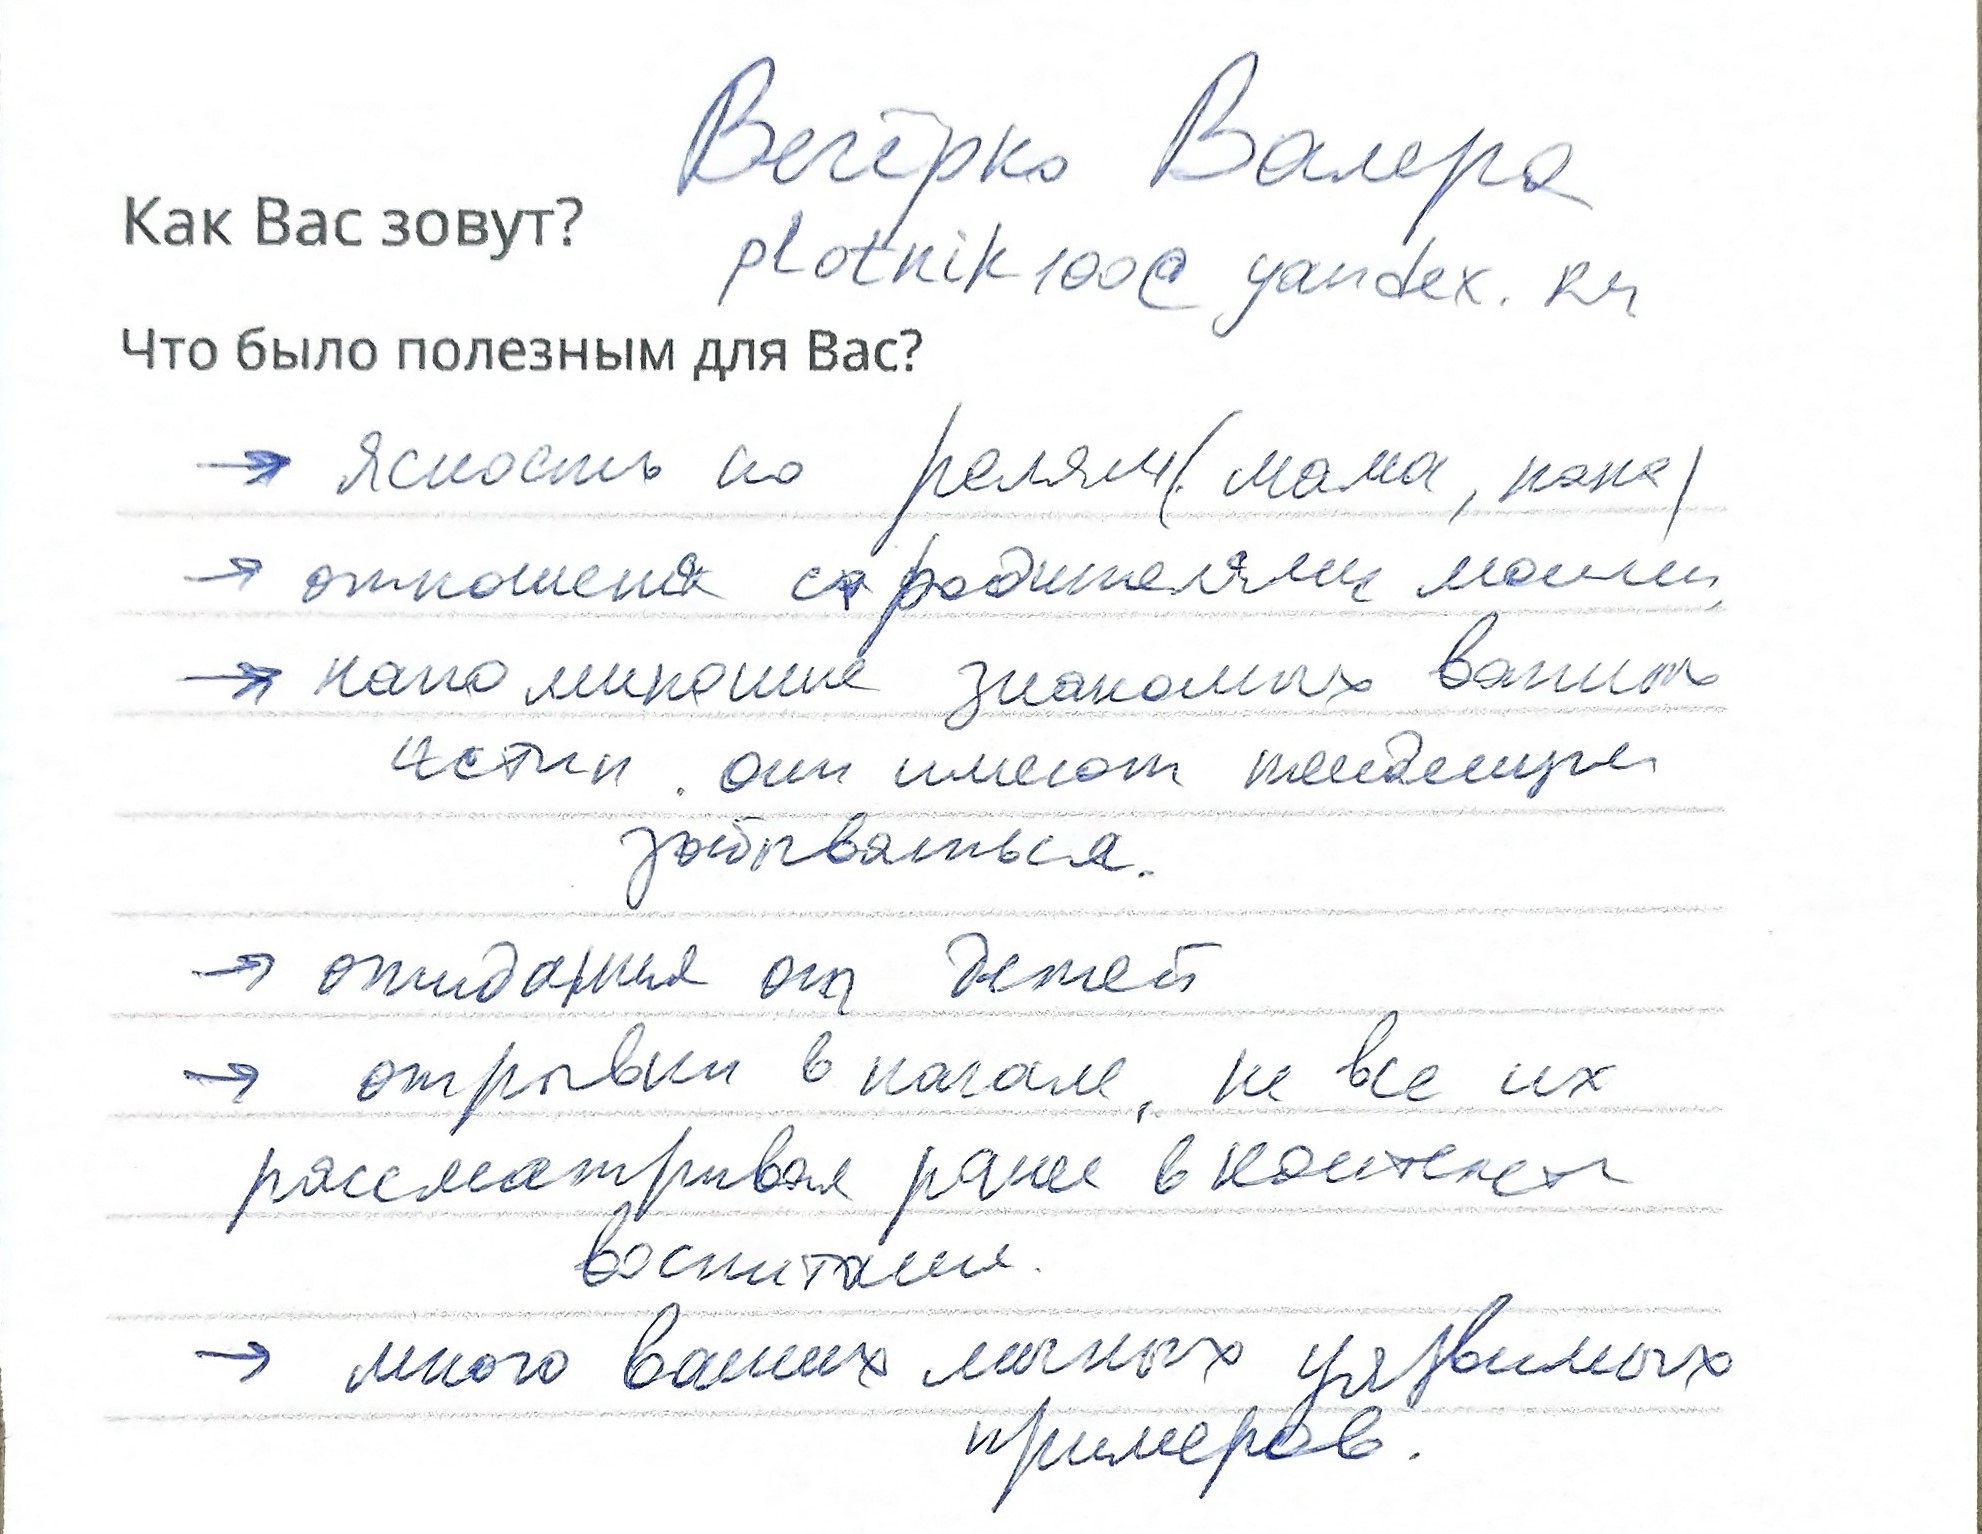 Вегёрко Валера
Как Вас зовут?
plotnik100@yandex.ru
Что было полезным для Вас?
→ Ясность по ролям (мама, папа)
→ отношения с родителями моими.
→ напоминание знакомых важных
истин. они имеют тенденцию
забываться.
→ ожидания от детей
→ отрывки в начале, не все их
рассматривал ранее в контексте
воспитания.
→ много ваших личных уязвимых
примеров.